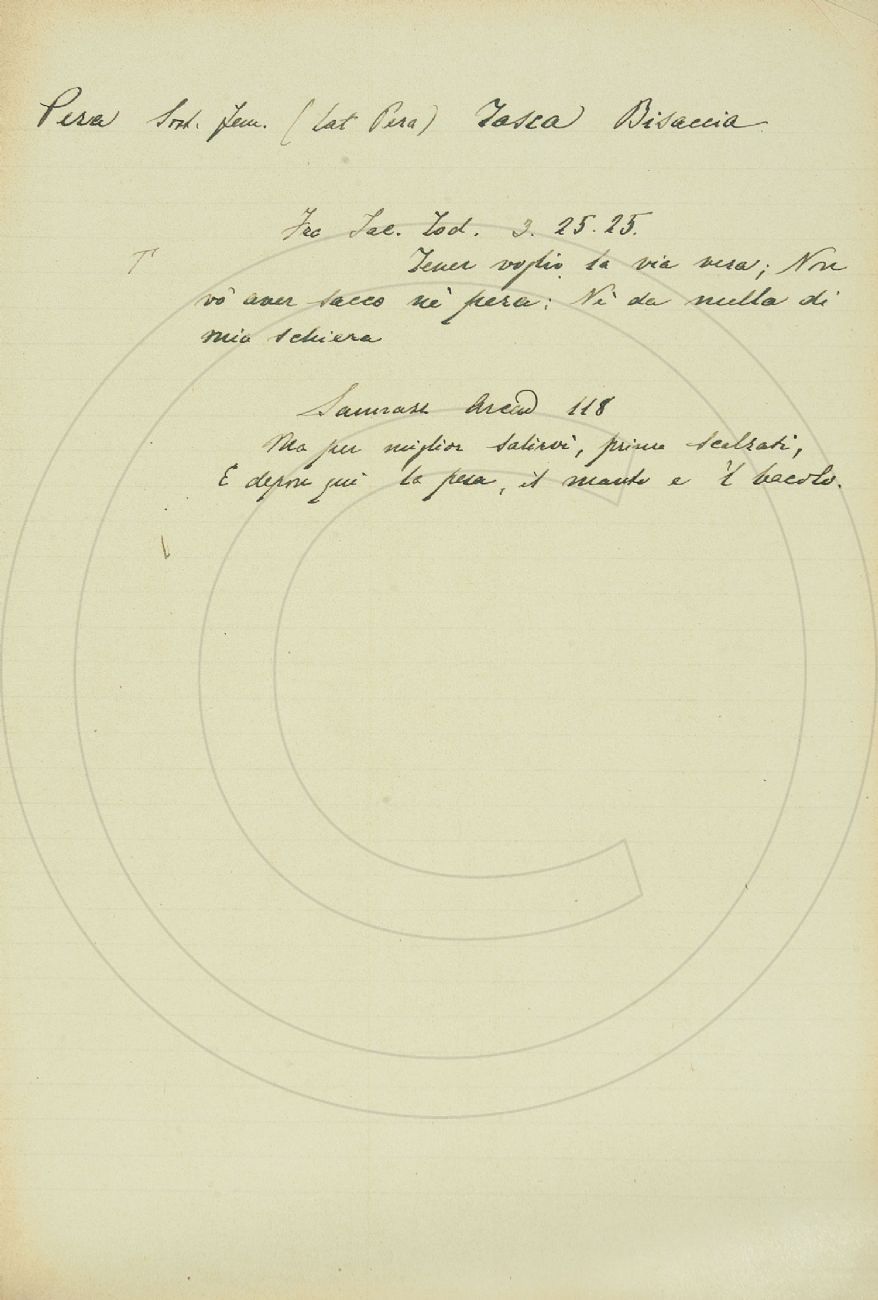 Pera Sost. fem. (Lat Pera) Tasca Bisaccia
Fra Jac. Tod. 3. 25. 25.
T Tener voglio la via vera; Non
vo' aver sacco nè pera: Nè da nulla di
mia schiera
Sannazz Arcad 118
Ma per miglior salirvi, prima scalzati,
E depon qui la pera, il manto e 'l bacolo.